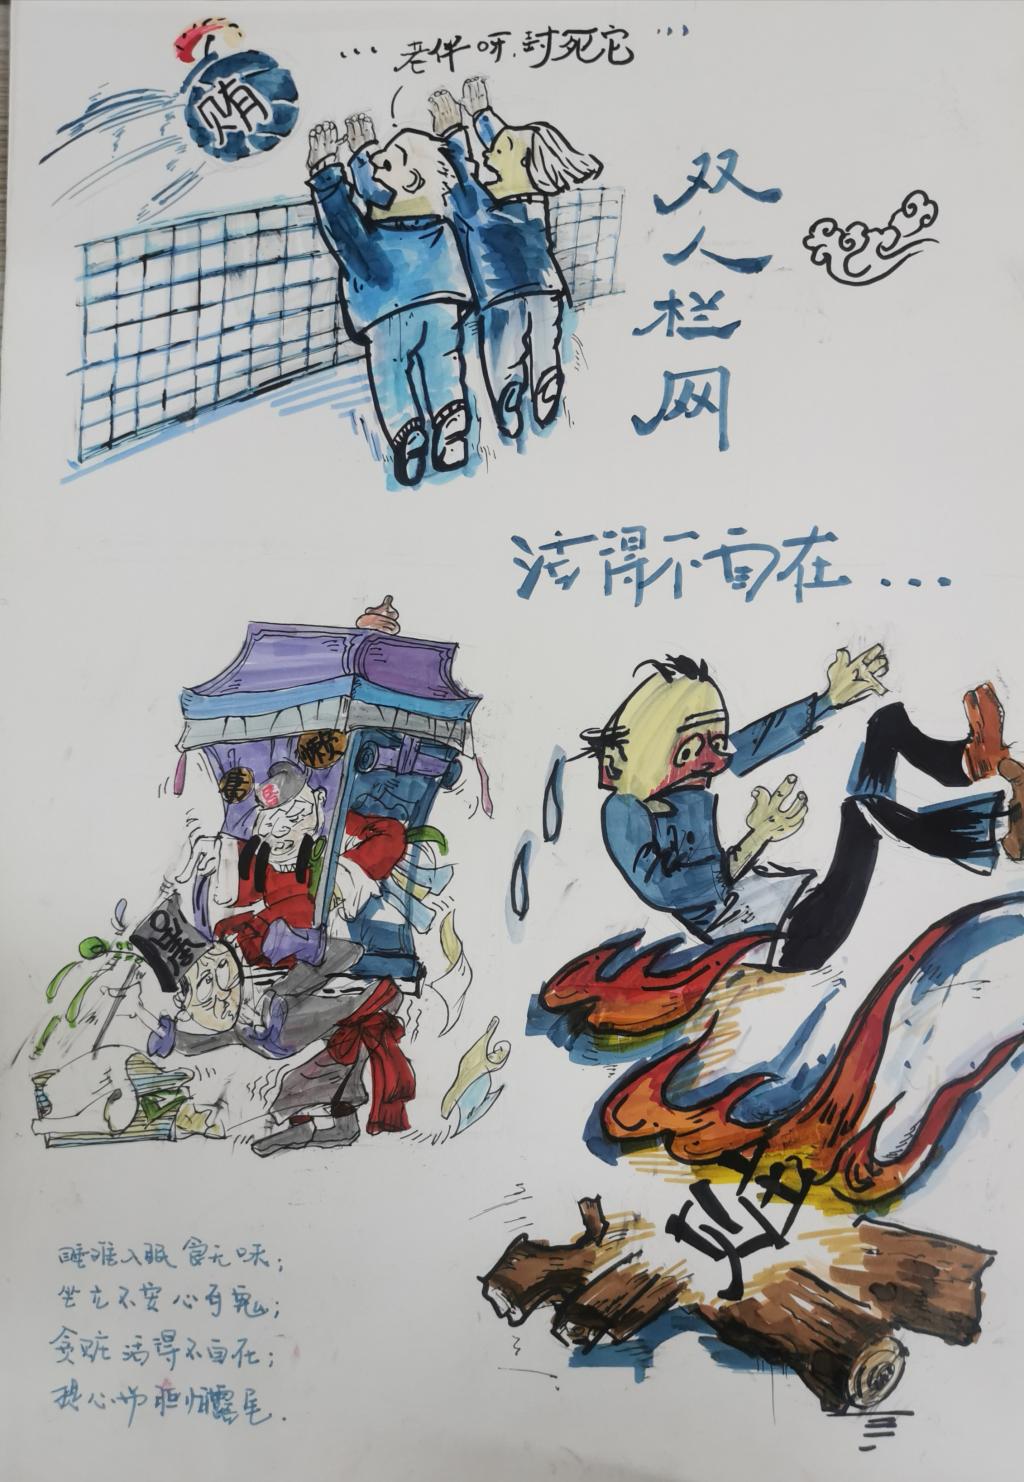 … 老伴呀,封死它 …
贿
双人栏网
活得不自在…
懒
庸
睡难入眠食无味;
坐立不安心有鬼;
贪赃活得不自在;
提心吊胆怕露尾.